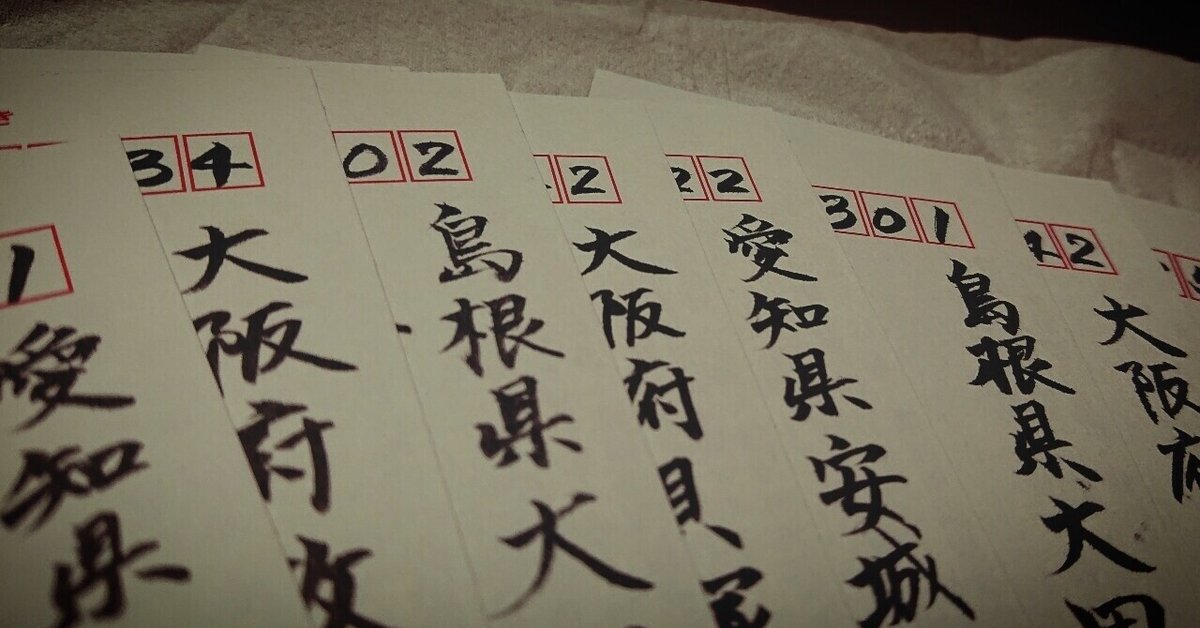 1
愛知県
34
大阪府枚
02
島根県大
2
大阪府貝
22
愛知県安城
301
島根県大田
22
大阪府